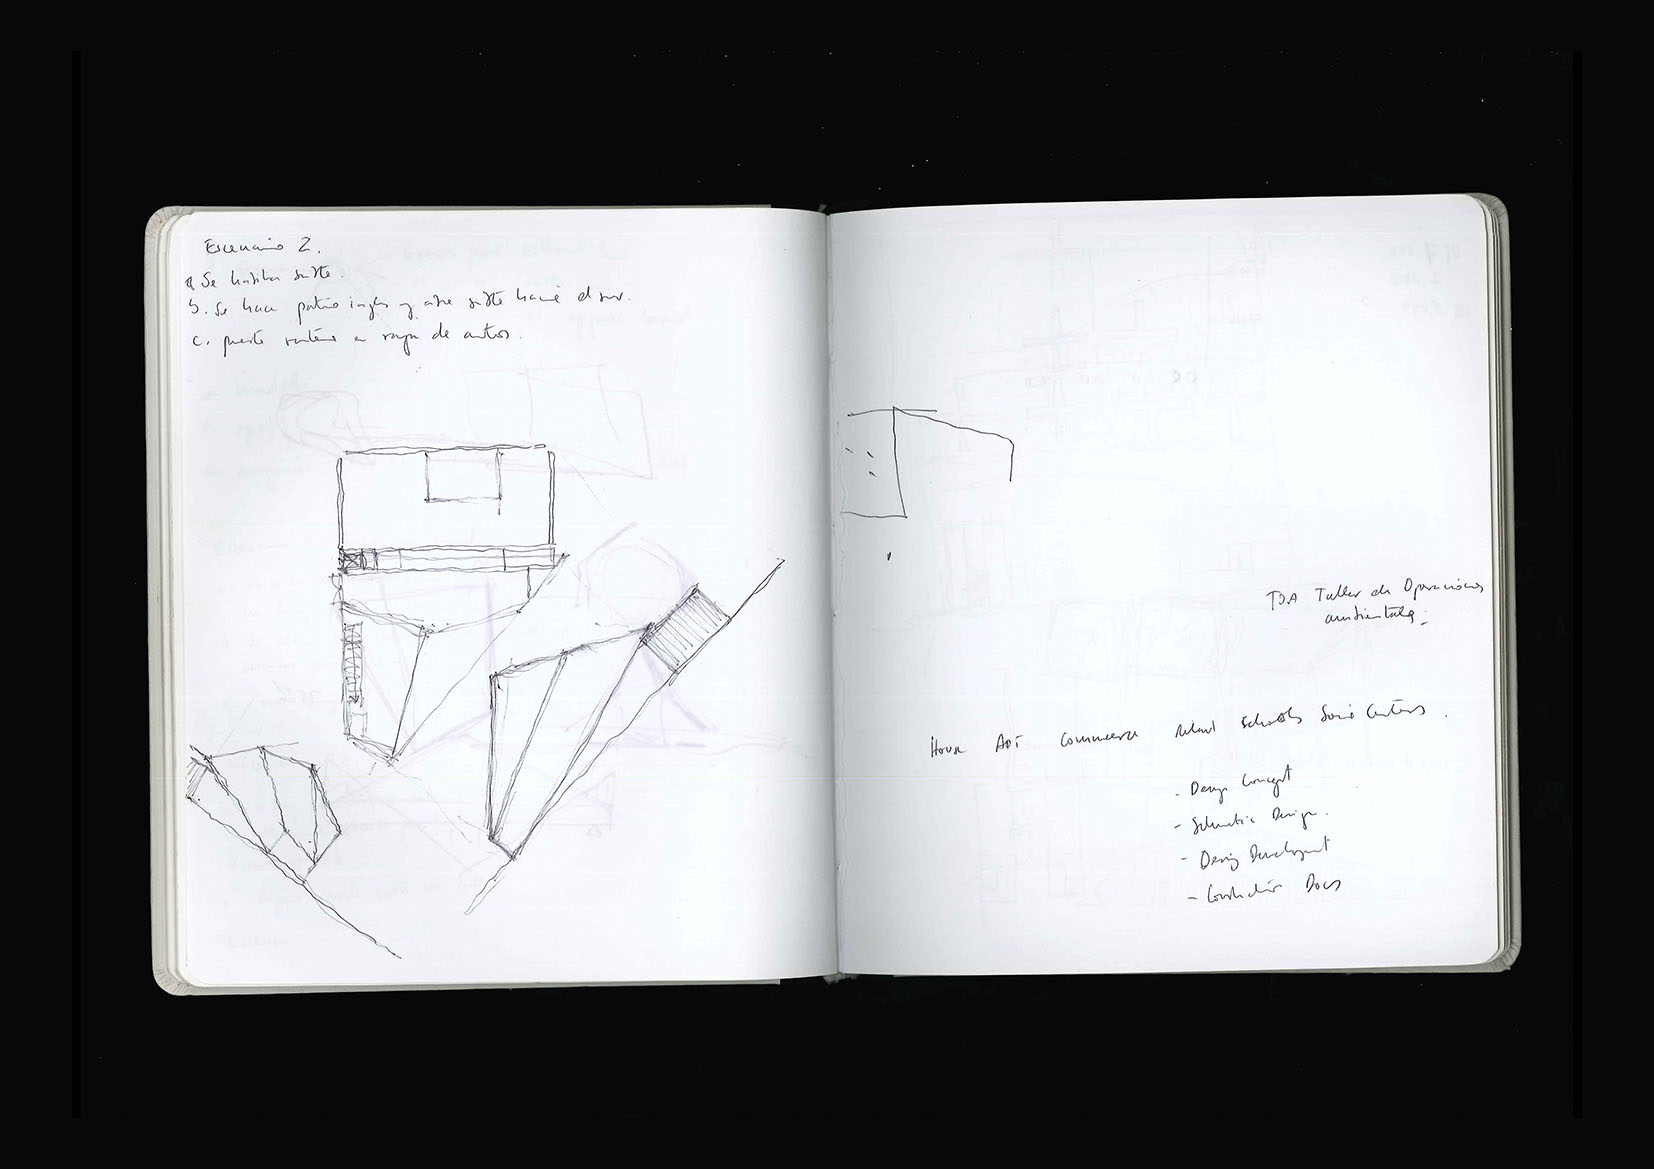 Escenario 2.
a. Se habilita subte.
b. Se hace patio ingles y abre subte hacia el sur.
c. puente de autos.
TOA Taller de Operaciones
ambientales
House APT Commerce Retail Schools Centers.
- Design Concept
- Schematic Design.
- Design Development
- Construction Docs